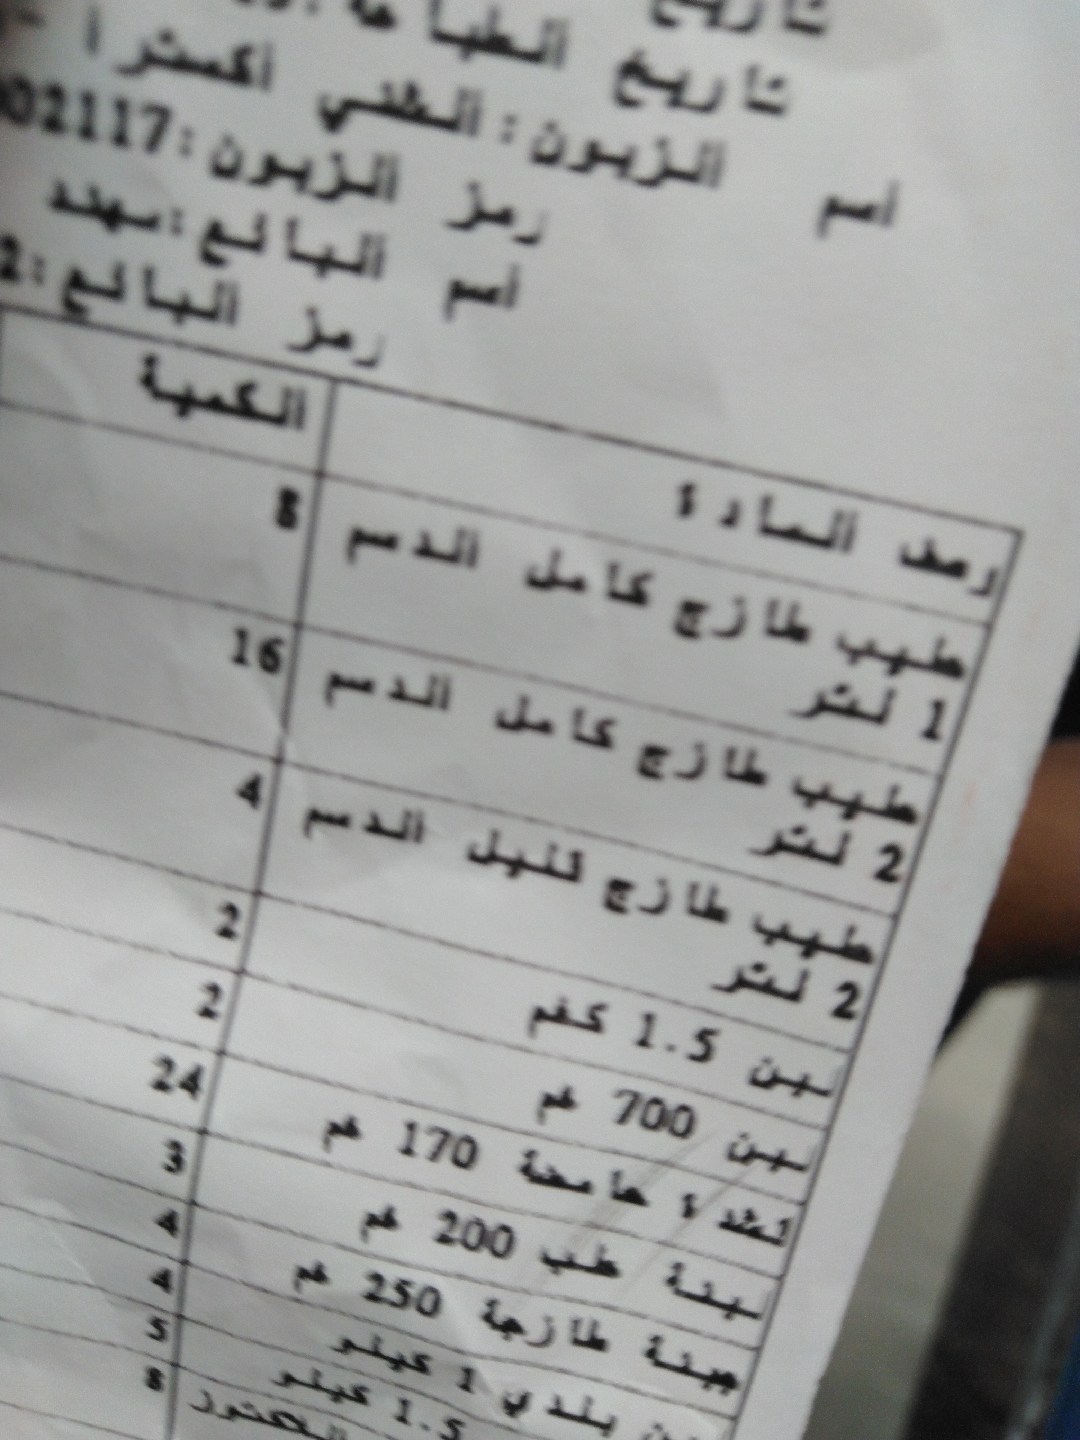 تاريخ
تاريخ الطباعة:
أسم الزبون:المثنى اكسترا -
رمز الزبون:02117
أسم البائع:مهند
رمز البائع:2
وصف المادة الكمية
حليب طازج كامل الدسم 8
1 لتر
حليب طازج كامل الدسم 16
2 لتر
حليب طازج قليل الدسم 4
2 لتر
لبن 1.5 كغم 2
لبن 700 غم 2
قشدة حامضة 170 غم 24
لبنة طب 200 غم 3
جبنة طازجة 250 غم 4
بلدي 1 كيلو 4
1.5 كيلو 5
اللاكتوز 8